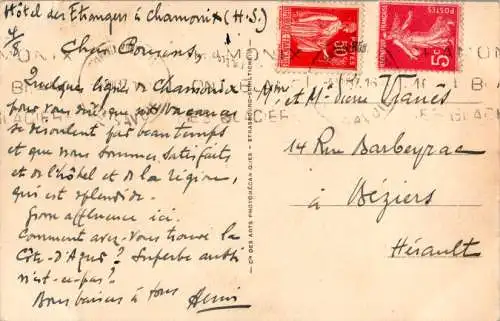 Hôtel des Etrangers à Chamonix (H.S.)
4/8
Chers Cousins
Quelques lignes de Chamonix
pour vous dire que nos vacances
se déroulent par beau temps
et que nous sommes satisfaits
et de l'hôtel et de la région,
qui est splendide.
Grosse affluence ici.
Comment avez-vous trouvé la
Côte-d'Azur ? Superbe
n'est-ce-pas ?
Bons baisers à tous
Henri
CIE DES ARTS PHOTOMÉCANIQUES - STRASBOURG-
POSTES
50c
POSTES
5c
CHAMONIX
GLACIER
Mr et Me Pierre
14 Rue Barbeyrac
à
Béziers
Hérault